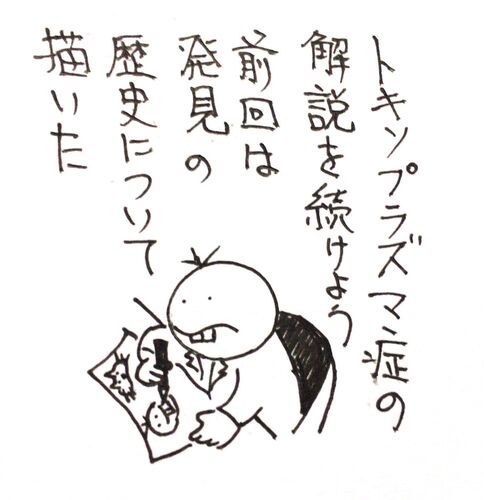 トキソプラズマ症の
解説を続けよう
前回は
発見の
歴史について
描いた